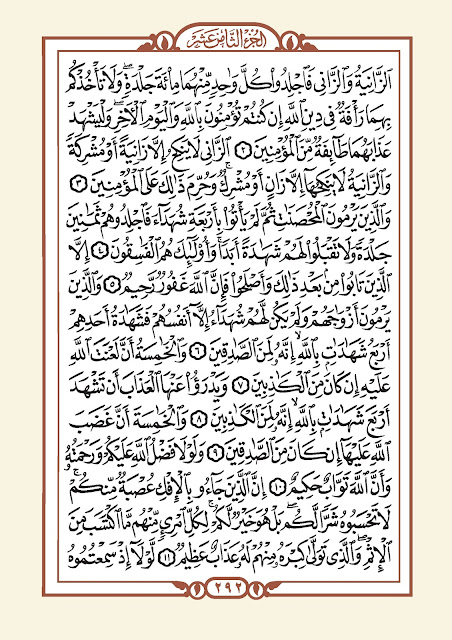 الجزء الثامن عشر
الزَّانِيَةُ وَالزَّانِي فَاجْلِدُوا كُلَّ وَاحِدٍ مِّنْهُمَا مِائَةَ جَلْدَةٍ ۖ وَلَا تَأْخُذْكُم
بِهِمَا رَأْفَةٌ فِي دِينِ اللَّهِ إِن كُنتُمْ تُؤْمِنُونَ بِاللَّهِ وَالْيَوْمِ الْآخِرِ ۖ وَلْيَشْهَدْ
عَذَابَهُمَا طَائِفَةٌ مِّنَ الْمُؤْمِنِينَ ٢ الزَّانِي لَا يَنكِحُ إِلَّا زَانِيَةً أَوْ مُشْرِكَةً
وَالزَّانِيَةُ لَا يَنكِحُهَا إِلَّا زَانٍ أَوْ مُشْرِكٌ ۚ وَحُرِّمَ ذَٰلِكَ عَلَى الْمُؤْمِنِينَ ٣
وَالَّذِينَ يَرْمُونَ الْمُحْصَنَاتِ ثُمَّ لَمْ يَأْتُوا بِأَرْبَعَةِ شُهَدَاءَ فَاجْلِدُوهُمْ ثَمَانِينَ
جَلْدَةً وَلَا تَقْبَلُوا لَهُمْ شَهَادَةً أَبَدًا ۚ وَأُولَٰئِكَ هُمُ الْفَاسِقُونَ ٤ إِلَّا
الَّذِينَ تَابُوا مِن بَعْدِ ذَٰلِكَ وَأَصْلَحُوا فَإِنَّ اللَّهَ غَفُورٌ رَّحِيمٌ ٥ وَالَّذِينَ
يَرْمُونَ أَزْوَاجَهُمْ وَلَمْ يَكُن لَّهُمْ شُهَدَاءُ إِلَّا أَنفُسُهُمْ فَشَهَادَةُ أَحَدِهِمْ
أَرْبَعُ شَهَادَاتٍ بِاللَّهِ ۙ إِنَّهُ لَمِنَ الصَّادِقِينَ ٦ وَالْخَامِسَةُ أَنَّ لَعْنَتَ اللَّهِ
عَلَيْهِ إِن كَانَ مِنَ الْكَاذِبِينَ ٧ وَيَدْرَؤُا عَنْهَا الْعَذَابَ أَن تَشْهَدَ
أَرْبَعَ شَهَادَاتٍ بِاللَّهِ ۙ إِنَّهُ لَمِنَ الْكَاذِبِينَ ٨ وَالْخَامِسَةَ أَنَّ غَضَبَ
اللَّهِ عَلَيْهَا إِن كَانَ مِنَ الصَّادِقِينَ ٩ وَلَوْلَا فَضْلُ اللَّهِ عَلَيْكُمْ وَرَحْمَتُهُ
وَأَنَّ اللَّهَ تَوَّابٌ حَكِيمٌ ١٠ إِنَّ الَّذِينَ جَاءُو بِالْإِفْكِ عُصْبَةٌ مِّنكُمْ ۚ
لَا تَحْسَبُوهُ شَرًّا لَّكُم ۖ بَلْ هُوَ خَيْرٌ لَّكُمْ ۚ لِكُلِّ امْرِئٍ مِّنْهُم مَّا اكْتَسَبَ مِنَ
الْإِثْمِ ۚ وَالَّذِي تَوَلَّىٰ كِبْرَهُ مِنْهُمْ لَهُ عَذَابٌ عَظِيمٌ ١١ لَّوْلَا إِذْ سَمِعْتُمُوهُ
٢٩٢